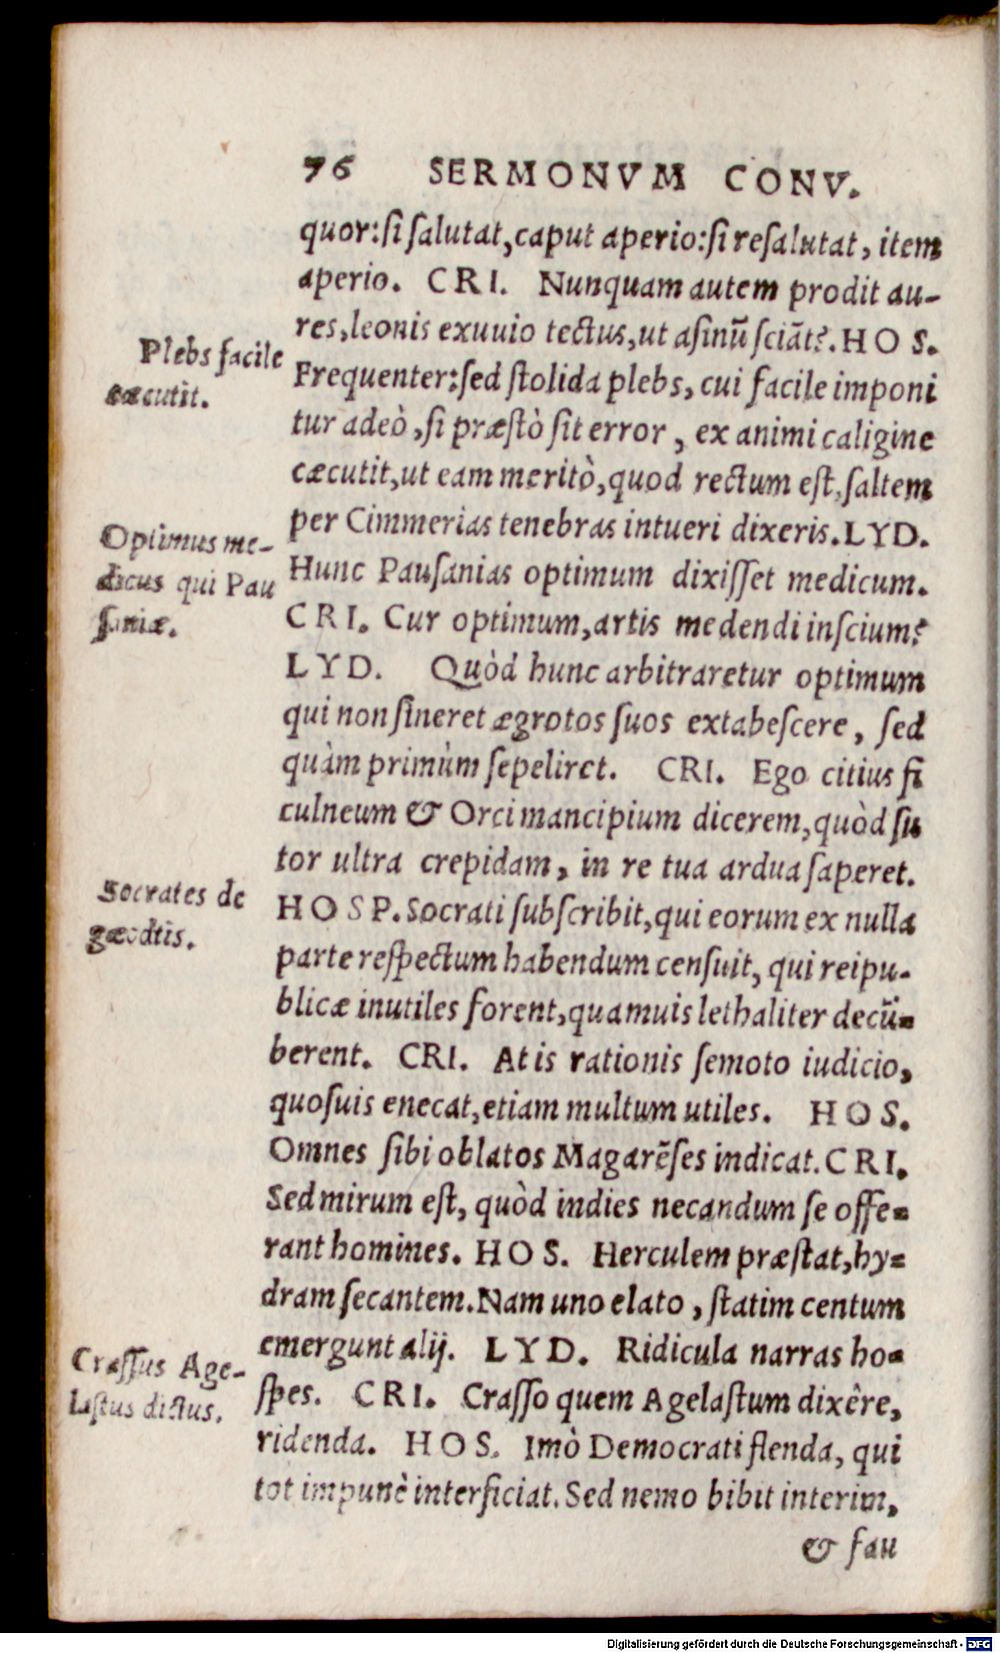 76 SERMONVM CONV.
quor:si salutat,caput aperio:si resalutat, item
aperio. CRI. Nunquam autem prodit au-
res,leonis exuuio tectus,ut asinũ sciãt?.HOS.
Plebs facile
cæcutit.
Frequenter:sed stolida plebs, cui facile imponi
tur adeò,si præstò sit error, ex animi caligine
cæcutit,ut eam meritò,quod rectum est,saltem
per Cimmerias tenebras intueri dixeris.LYD.
Optimus me-
dicus qui Pau
saniæ.
Hunc Pausanias optimum dixisset medicum.
CRI. Cur optimum,artis medendi inscium?
LYD. Quòd hunc arbitraretur optimum
qui non sineret ægrotos suos extabescere, sed
quàm primùm sepeliret. CRI. Ego citius fi
culneum & Orci mancipium dicerem,quòd su
tor ultra crepidam, in re tua ardua saperet.
Socrates de
gæodtis.
HOSP. Socrati subscribit,qui eorum ex nulla
parte respectum habendum censuit, qui reipu-
blicæ inutiles forent,quamuis lethaliter decũ-
berent. CRI. At is rationis semoto iudicio,
quosuis enecat,etiam multum utiles. HOS.
Omnes sibi oblatos Magarẽses indicat.CRI.
Sed mirum est, quòd indies necandum se offe-
rant homines. HOS. Herculem præstat,hy-
dram secantem.Nam uno elato, statim centum
emergunt alij. LYD. Ridicula narras ho-
Crassus Age-
lastus dictus.
spes. CRI. Crasso quem Agelastum dixêre,
ridenda. HOS. Imò Democrati flenda, qui
tot impunè interficiat. Sed nemo bibit interim,
& fau
Digitalisierung gefördert durch die Deutsche Forschungsgemeinschaft - DFG